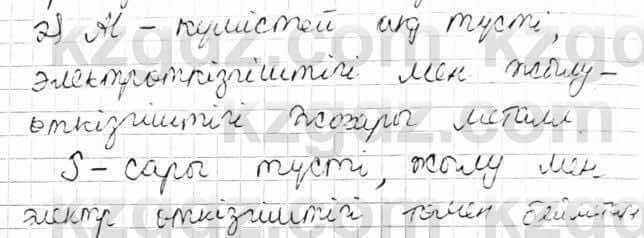 2) Al - күмістей ақ түсті,
электрөткізгіштігі мен жылу-
өткізгіштігі жоғары металл.
S - сары түсті, жылу мен
электр өткізгіштігі төмен бейметалл